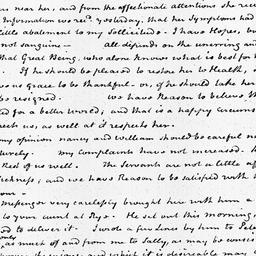 us near her, and from the affectionate attentions she rece
Information we recd. yesterday, that her Symptoms had
little abatement to my Sollicitude. I have Hopes, bu
not sanguine — all depends on the unerring an
that Great Being, who alone knows what is best for
If he should be pleased to restore her to Health,
us no Grace to be thankful — or, if he should take her
be resigned. We have Reason to believe th
ed for a better world; and that is a happy Circums
eech us, as well as it respects her.
my opinion nancy and William should be careful no
urely. my Complaints have not increased.
Rest of us well. The Servants are not a little af
ickness; and we have Reason to be satisfied with th
our —
messenger very carefully brought her with him a
to your aunt at Rye. He set out this morning,
to deliver it. I wrote a few Lines by him to Pete
only
, as much of and from me to Sally, as may be consis